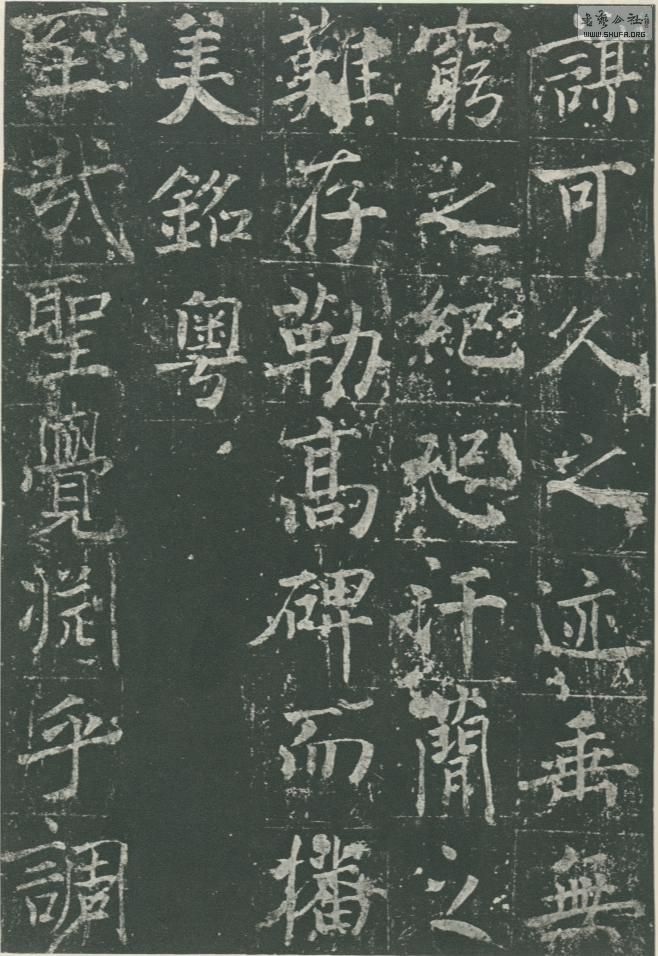 謀可久之迹垂無
窮之紀恐汗簡之
難存勒高碑而播
美銘粤
至哉聖覺乎調
書藝公社
WWW.SHUFA.ORG